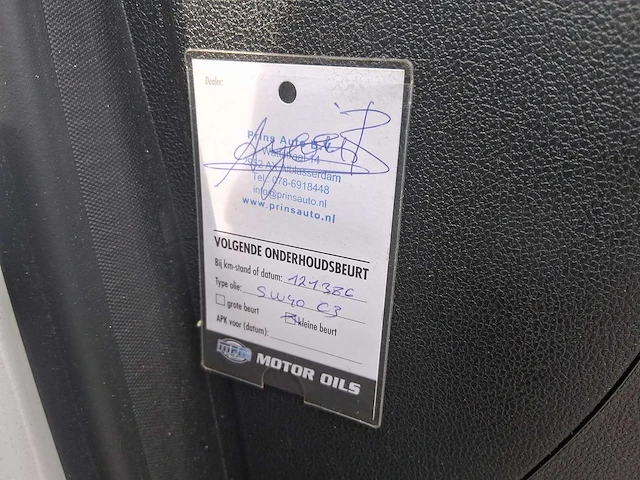 Dealer:
Prins Auto B.V.
Alblasserdam
Tel.: 078-6918448
info@prinsauto.nl
www.prinsauto.nl
VOLGENDE ONDERHOUDSBEURT
Bij km-stand of datum: 121386
Type olie: 5W40 C3
grote beurt kleine beurt
APK voor (datum):
MPM MOTOR OILS